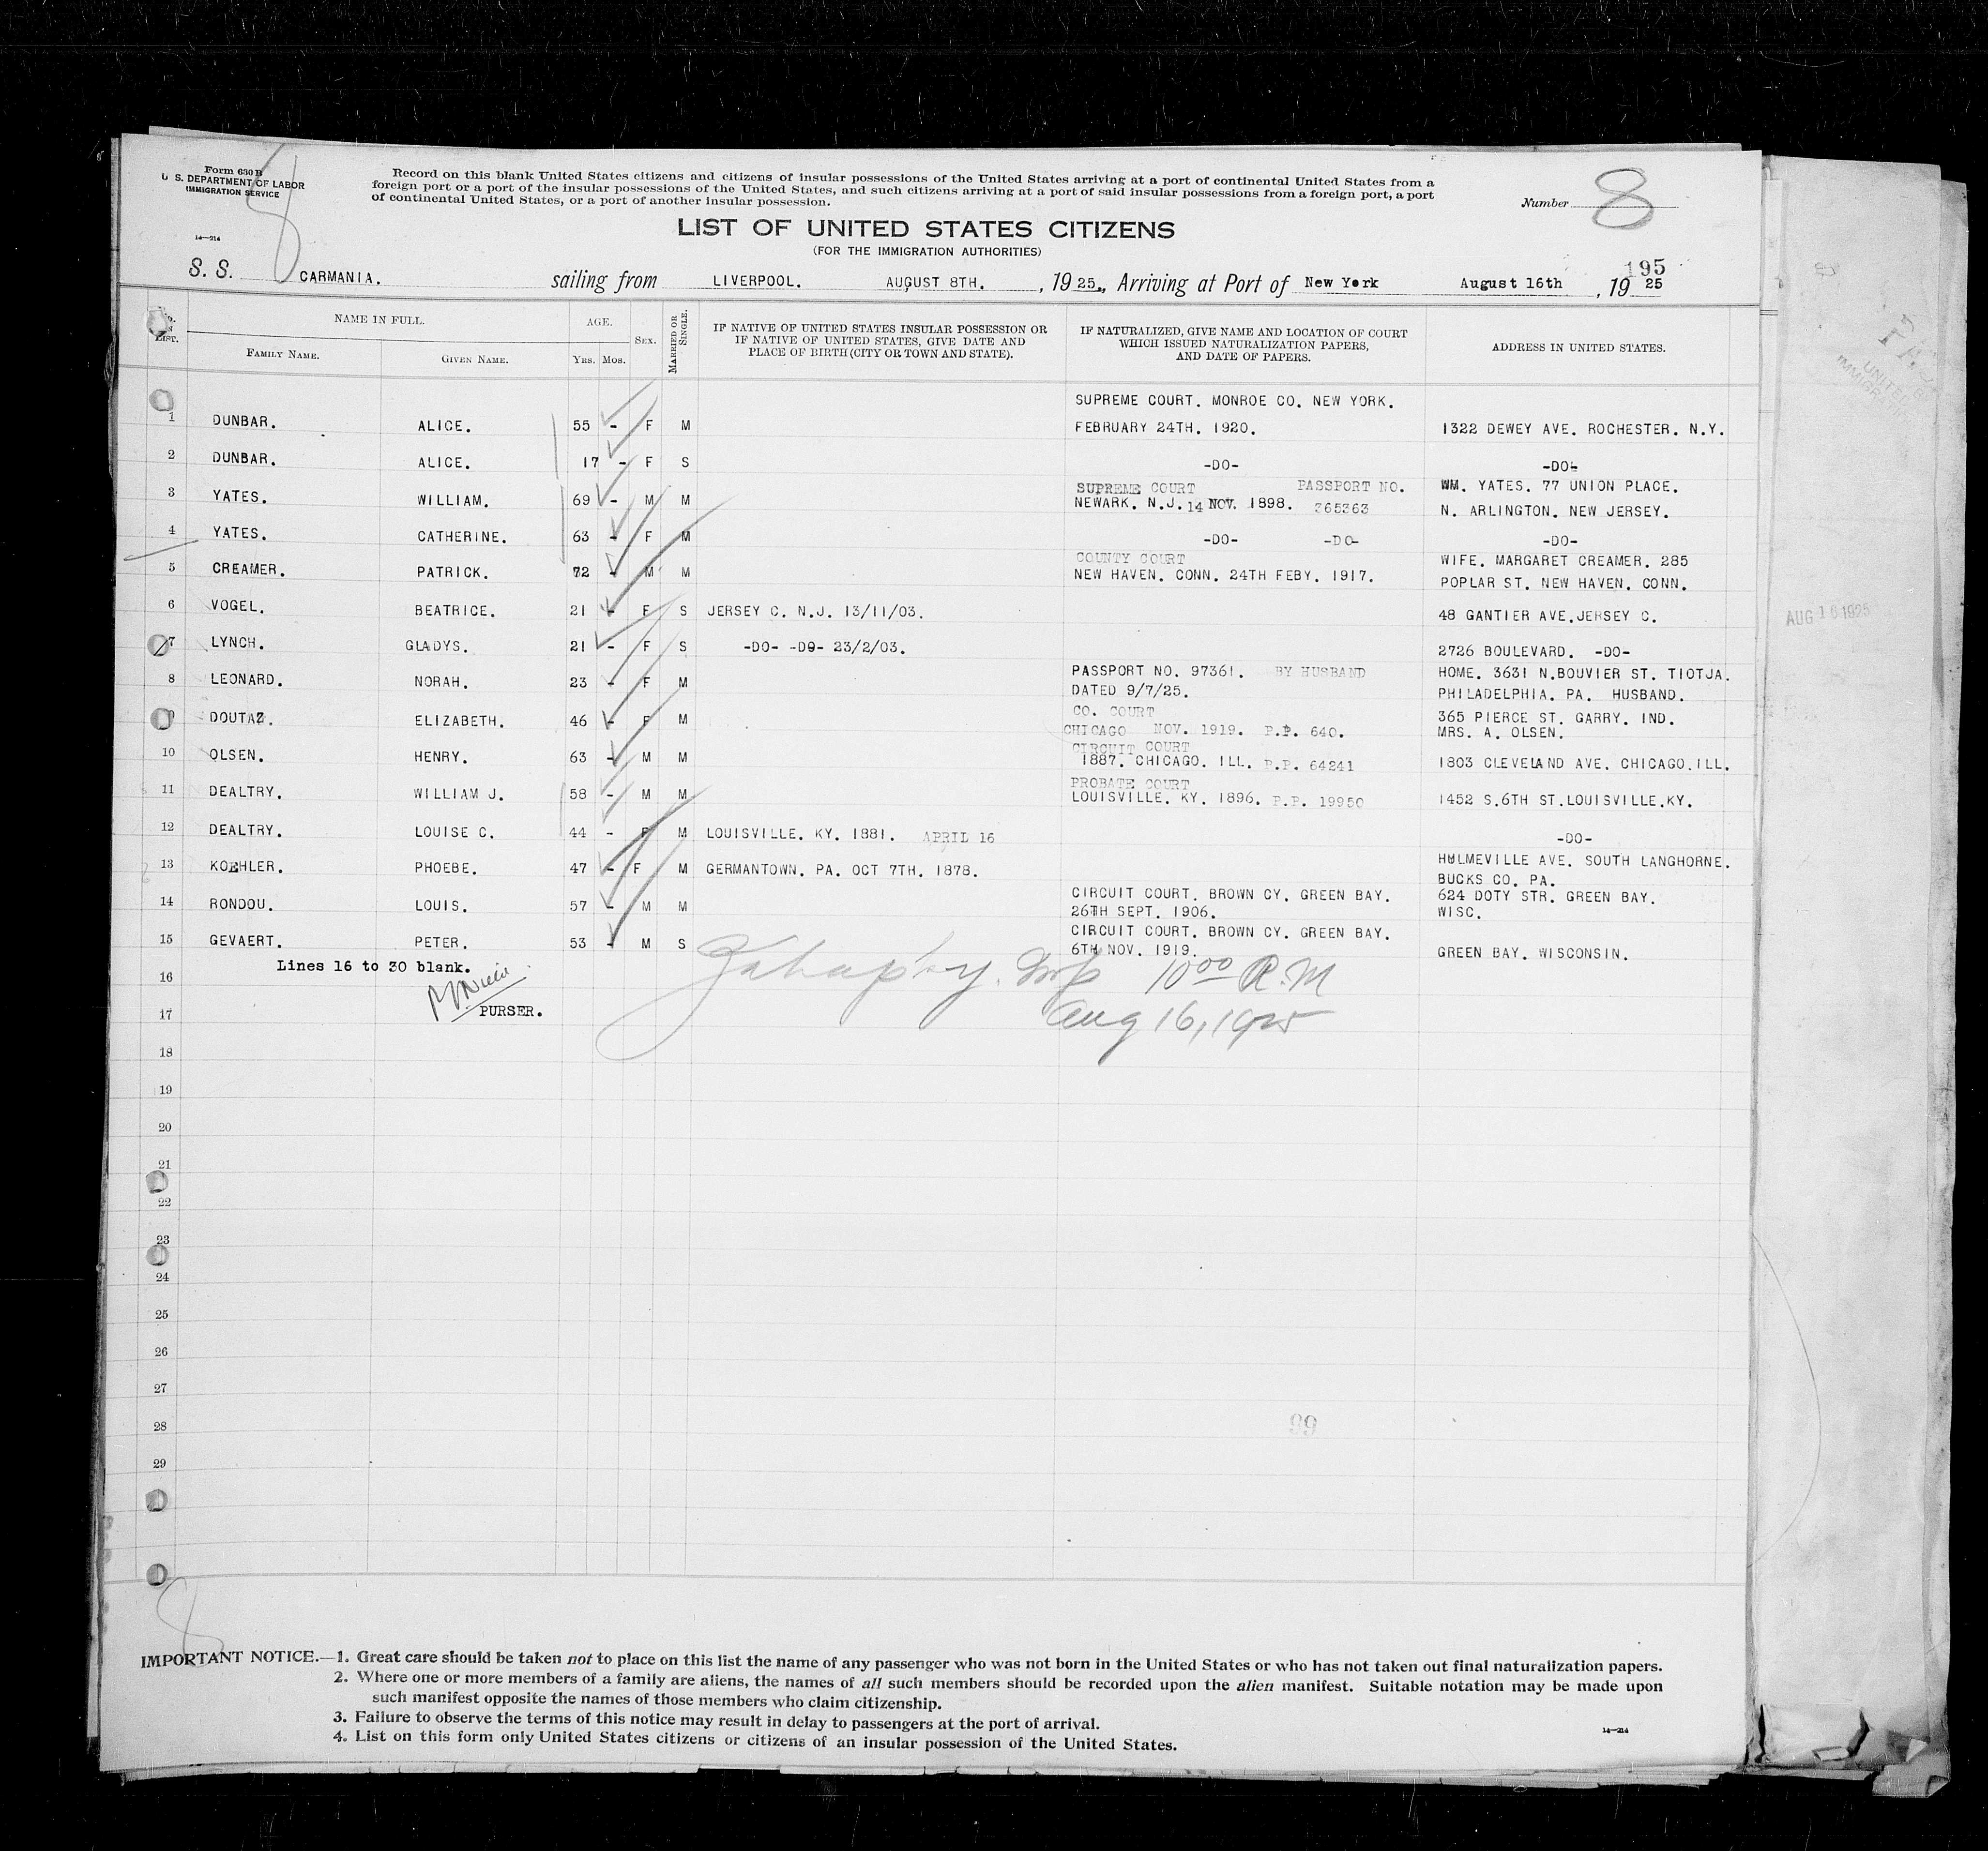 Form 630 B
U. S. DEPARTMENT OF LABOR
IMMIGRATION SERVICE
14—214
8
Record on this blank United States citizens and citizens of insular possessions of the United States arriving at a port of continental United States from a
foreign port or a port of the insular possessions of the United States, and such citizens arriving at a port of said insular possessions from a foreign port, a port
of continental United States, or a port of another insular possession.
Number 8
LIST OF UNITED STATES CITIZENS
(FOR THE IMMIGRATION AUTHORITIES)
195
S. S. CARMANIA. sailing from LIVERPOOL. AUGUST 8TH. , 19 25., Arriving at Port of New York August 16th , 19 25
No. in List. NAME IN FULL. AGE. Sex. Married or Single. IF NATIVE OF UNITED STATES INSULAR POSSESSION OR IF NATIVE OF UNITED STATES, GIVE DATE AND PLACE OF BIRTH (CITY OR TOWN AND STATE). IF NATURALIZED, GIVE NAME AND LOCATION OF COURT WHICH ISSUED NATURALIZATION PAPERS, AND DATE OF PAPERS. ADDRESS IN UNITED STATES.
Family Name. Given Name. Yrs. Mos.
SUPREME COURT. MONROE CO. NEW YORK.
1 DUNBAR. ALICE. 55 - F M FEBRUARY 24TH. 1920. 1322 DEWEY AVE. ROCHESTER. N.Y.
2 DUNBAR. ALICE. 17 - F S -DO- -DO-
SUPREME COURT PASSPORT NO. WM. YATES. 77 UNION PLACE.
3 YATES. WILLIAM. 69 - M M NEWARK. N.J. 14 NOV. 1898. 365363 N. ARLINGTON. NEW JERSEY.
4 YATES. CATHERINE. 63 - F M -DO- -DO- -DO-
COUNTY COURT WIFE. MARGARET CREAMER. 285
5 CREAMER. PATRICK. 72 - M M NEW HAVEN. CONN. 24TH FEBY. 1917. POPLAR ST. NEW HAVEN. CONN.
6 VOGEL. BEATRICE. 21 - F S JERSEY C. N.J. 13/11/03. 48 GANTIER AVE.JERSEY C.
7 LYNCH. GLADYS. 21 - F S -DO- -DO- 23/2/03. 2726 BOULEVARD. -DO-
PASSPORT NO. 97361. BY HUSBAND HOME. 3631 N.BOUVIER ST. TIOTJA.
8 LEONARD. NORAH. 23 - F M DATED 9/7/25. PHILADELPHIA. PA. HUSBAND.
CO. COURT 365 PIERCE ST. GARRY. IND.
9 DOUTAZ. ELIZABETH. 46 - F M CHICAGO NOV. 1919. P.P. 640. MRS. A. OLSEN.
CIRCUIT COURT
10 OLSEN. HENRY. 63 - M M 1887. CHICAGO. ILL. P.P. 64241 1803 CLEVELAND AVE. CHICAGO.ILL.
PROBATE COURT
11 DEALTRY. WILLIAM J. 58 - M M LOUISVILLE. KY. 1896. P.P. 19950 1452 S.6TH ST.LOUISVILLE.KY.
12 DEALTRY. LOUISE C. 44 - F M LOUISVILLE. KY. 1881. APRIL 16 -DO-
HULMEVILLE AVE. SOUTH LANGHORNE.
13 KOEHLER. PHOEBE. 47 - F M GERMANTOWN. PA. OCT 7TH. 1878. BUCKS CO. PA.
CIRCUIT COURT. BROWN CY. GREEN BAY. 624 DOTY STR. GREEN BAY.
14 RONDOU. LOUIS. 57 - M M 26TH SEPT. 1906. WISC.
CIRCUIT COURT. BROWN CY. GREEN BAY.
15 GEVAERT. PETER. 53 - M S 6TH NOV. 1919. GREEN BAY. WISCONSIN.
Lines 16 to 30 blank.
16 10 00 A.M
PURSER.
17 Aug 16, 1925
18
19
20
21
22
23
24
25
26
27
28
29
99
AUG 16 1925
8
IMPORTANT NOTICE.—1. Great care should be taken not to place on this list the name of any passenger who was not born in the United States or who has not taken out final naturalization papers.
2. Where one or more members of a family are aliens, the names of all such members should be recorded upon the alien manifest. Suitable notation may be made upon
such manifest opposite the names of those members who claim citizenship.
3. Failure to observe the terms of this notice may result in delay to passengers at the port of arrival.
4. List on this form only United States citizens or citizens of an insular possession of the United States.
14—214